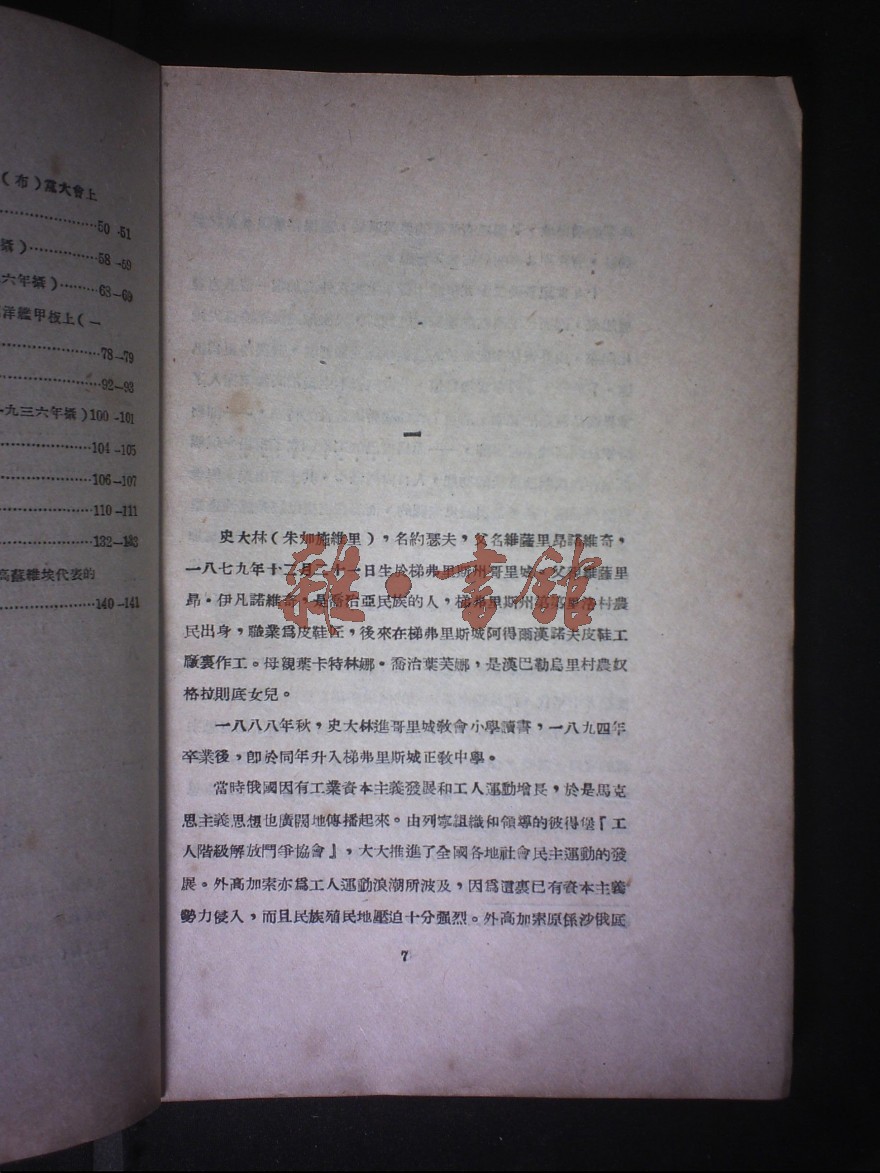 （布）黨大會上
50-51
攝）58-59
六年攝）68-69
洋艦甲板上（一
78-79
92-93
九三六年攝）100-101
104-105
106-107
110-111
132-133
高蘇維埃代表的
140-141
一
史大林（朱加施維里），名約瑟夫，父名維薩里昂諾維奇，
一八七九年十二月二十一日生於梯弗里斯州哥里城。父親維薩里
昂·伊凡諾維奇，是喬治亞民族的人，梯弗里斯州第第里洛村農
民出身，職業爲皮鞋匠，後來在梯弗里斯城阿得爾漢諾夫皮鞋工
廠裏作工。母親葉卡特林娜·喬治葉芙娜，是漢巴勒烏里村農奴
格拉則底女兒。
一八八八年秋，史大林進哥里城敎會小學讀書，一八九四年
卒業後，卽於同年升入梯弗里斯城正敎中學。
當時俄國因有工業資本主義發展和工人運動增長，於是馬克
思主義思想也廣闊地傳播起來。由列寧組織和領導的彼得堡『工
人階級解放鬥爭協會』，大大推進了全國各地社會民主運動的發
展。外高加索亦爲工人運動浪潮所波及，因爲這裏已有資本主義
勢力侵入，而且民族殖民地壓迫十分强烈。外高加索原係沙俄底
7
雜·書館